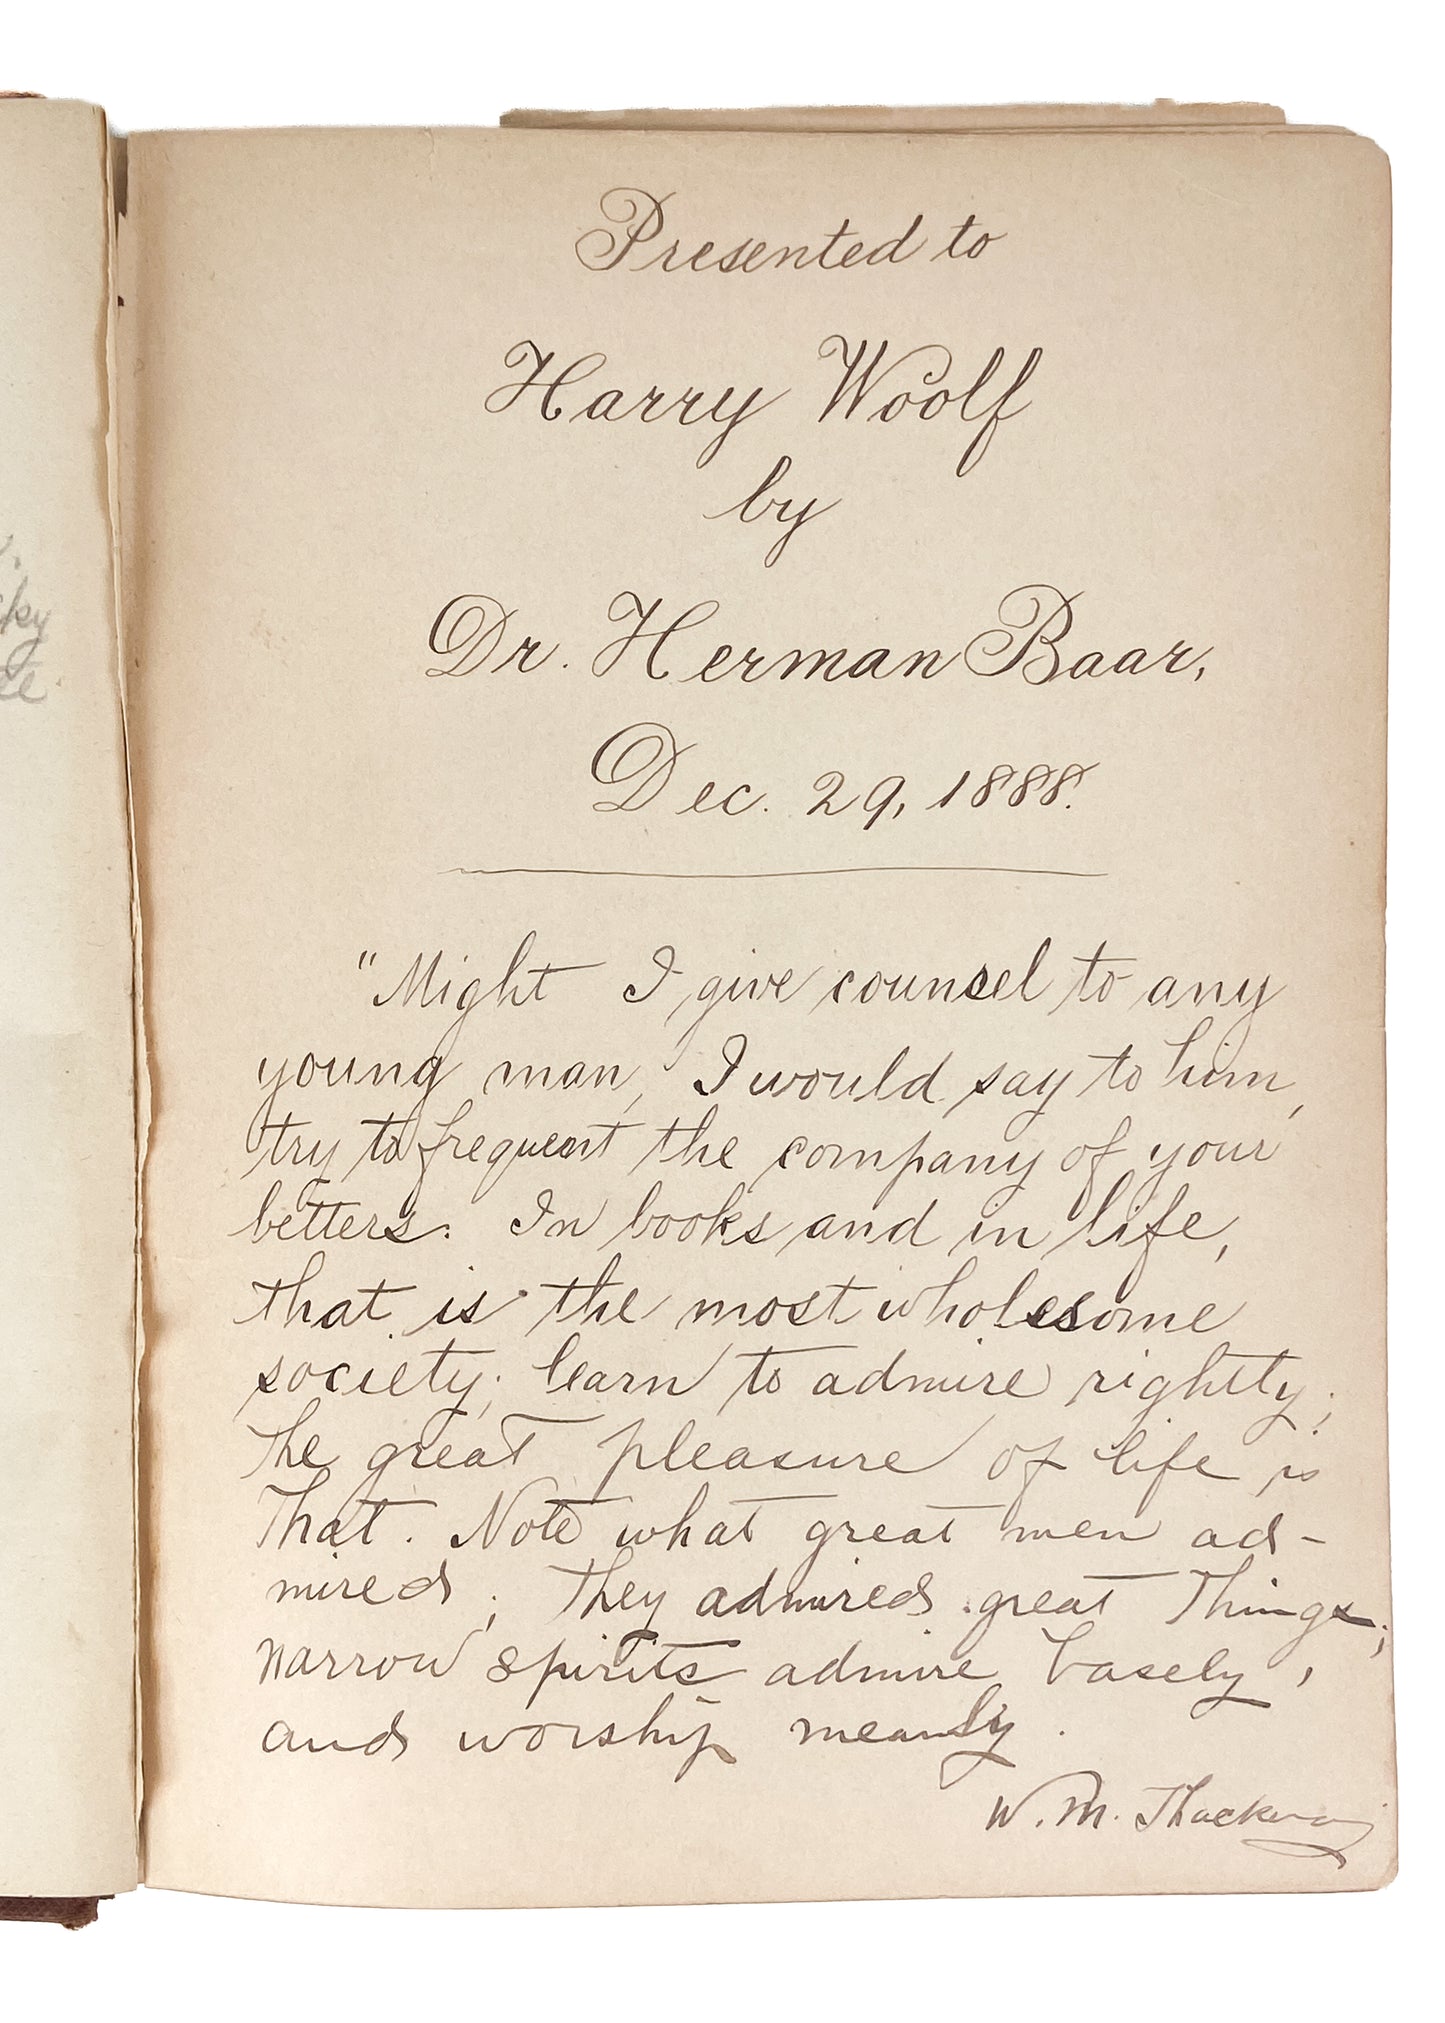 Presented to
Harry Woolf
by
Dr. Herman Baar,
Dec. 29, 1888.
"Might I give counsel to any
young man, I would say to him,
try to frequent the company of your
betters. In books and in life,
that is the most wholesome
society; learn to admire rightly;
the great pleasure of life is
that. Note what great men ad-
mired; they admired great things;
narrow spirits admire basely,
and worship meanly.
W. M. Thackeray